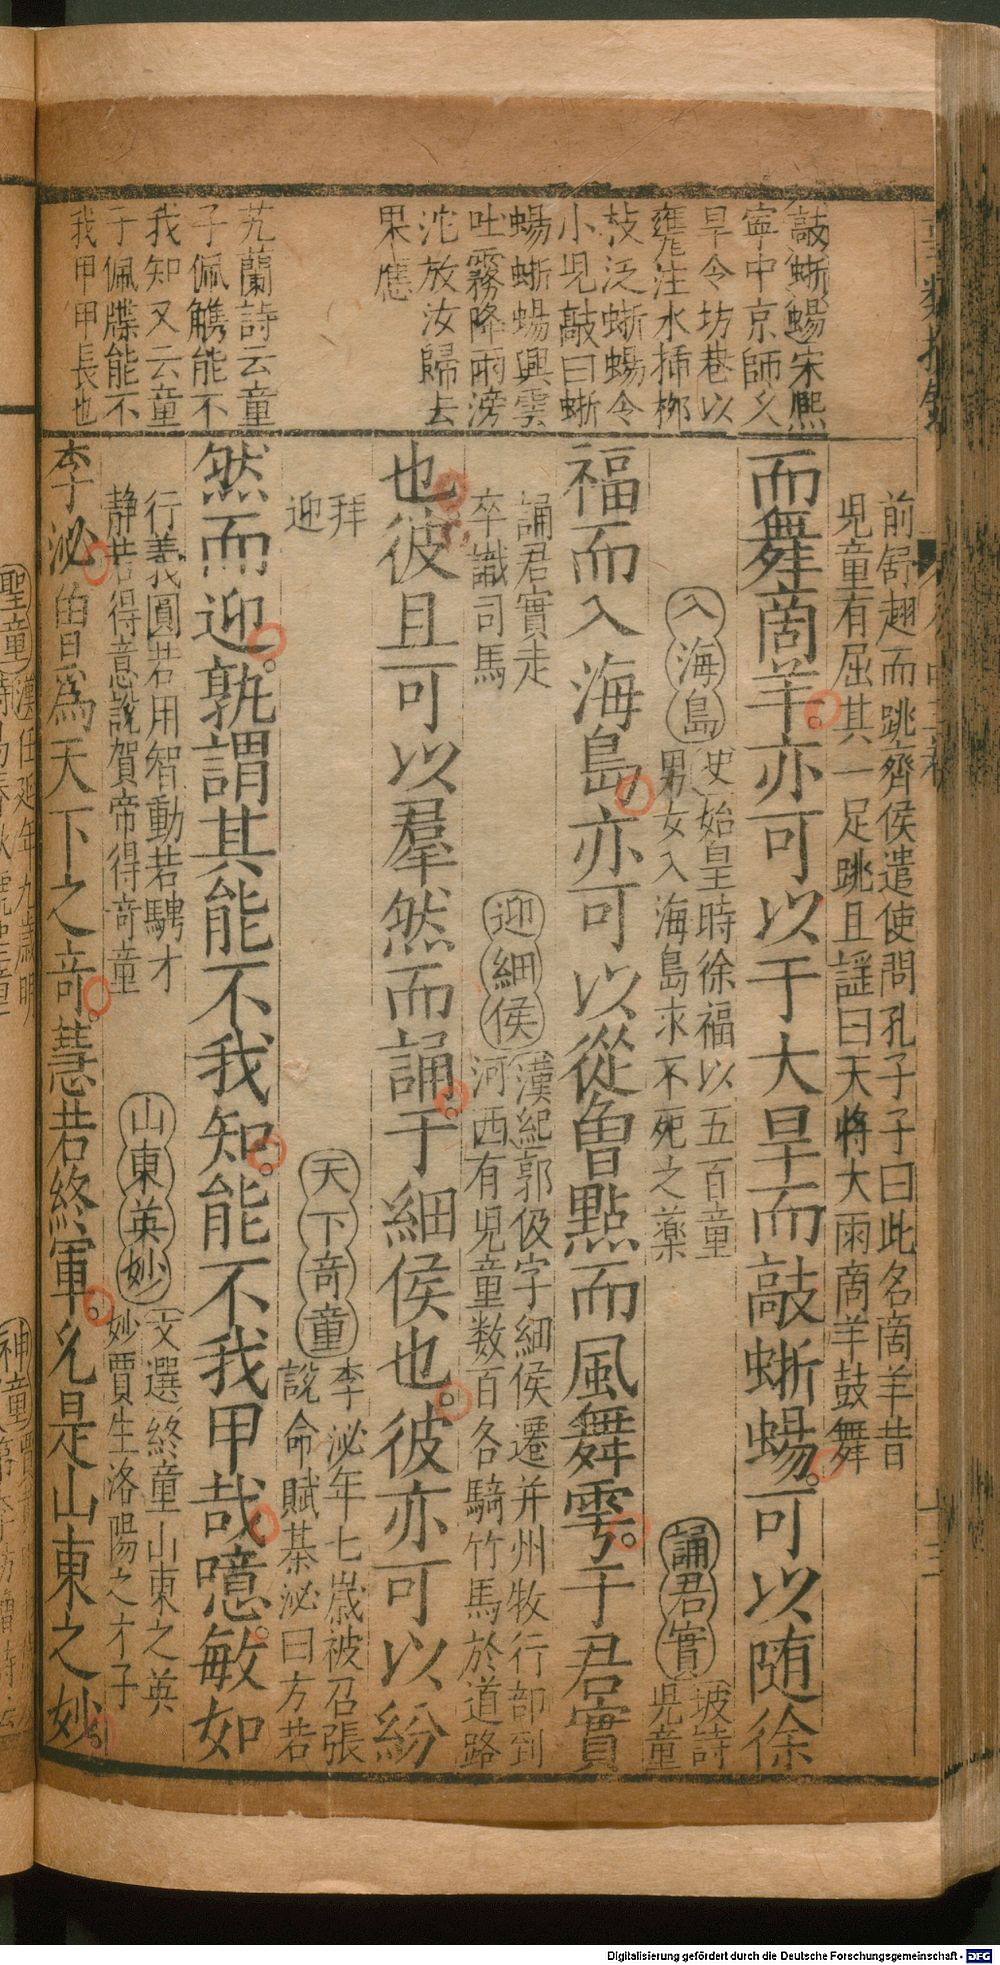 敲蜥蜴宋熈
寧中京師久
旱令坊巷以
甕注水插栁
枝泛蜥蜴令
小児敲曰蜥
蜴蜥蜴興雲
吐霧降雨滂
沱放汝歸去
果應
芄蘭詩云童
子佩觹能不
我知又云童
子佩牒能不
我甲甲長也
前舒趐而跳齊侯遣使問孔子子曰此名啇羊昔
児童有屈其一足跳且謡曰天將大雨商羊鼓舞
而舞啇羊亦可以于大旱而敲蜥蜴可以随徐
入海島 史始皇時徐福以五百童
男女入海島求不死之藥
誦君實 坡詩
児童
福而入海島亦可以從魯點而風舞雩于君實
誦君實走
卒識司馬
迎細侯 漢紀郭伋字細侯遷并州牧行部到
河西有児童数百各騎竹馬於道路
也彼且可以羣然而誦于細侯也彼亦可以紛
拜
迎
天下奇童 李泌年七歳被召張
說命賦棊泌曰方若
然而迎孰謂其能不我知能不我甲哉噫敏如
行義圓若用智動若騁才
静若得意說賀帝得奇童
山東英妙 文選終童山東之英
妙賈生洛陽之才子
李泌曽為天下之奇慧若終軍允是山東之妙
聖童
神童
Digitalisierung gefördert durch die Deutsche Forschungsgemeinschaft - DFG